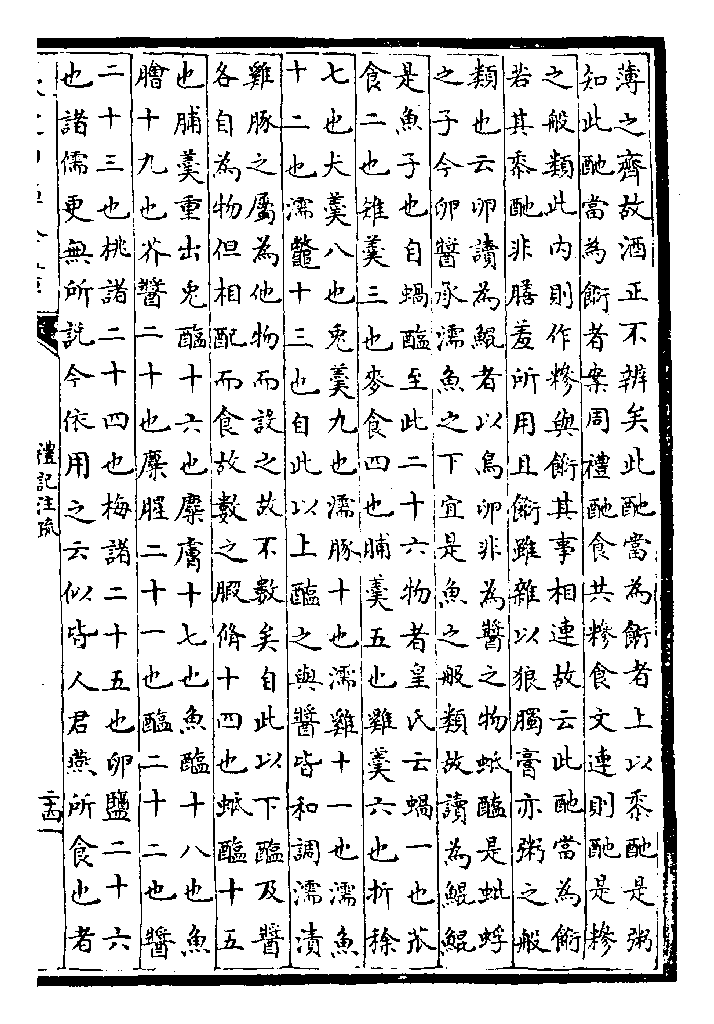 薄之齊故酒正不辨矣此酏當為餰者上以黍酏是粥
知此酏當為餰者案周禮酏食共糝食文連則酏是糝
之般類此内則作糝與餰其事相連故云此酏當為餰
若其黍酏非膳羞所用且餰雖雜以狼臅膏亦粥之般
類也云卵讀為鯤者以鳥卵非為醬之物蚳醢是蚍蜉
之子今卵醬承濡魚之下宜是魚之般類故讀為鯤鯤
是魚子也自蝸醢至此二十六物者皇氏云蝸一也苽
食二也雉羹三也麥食四也脯羹五也雞羹六也折稌
七也犬羹八也兎羹九也濡豚十也濡雞十一也濡魚
十二也濡鼈十三也自此以上醢之與醬皆和調濡漬
雞豚之屬為他物而設之故不數矣自此以下醢及醬
各自為物但相配而食故數之腶脩十四也蚳醢十五
也脯羹重出兎醢十六也麋膚十七也魚醢十八也魚
膾十九也芥醬二十也麋腥二十一也醢二十二也醬
二十三也桃諸二十四也梅諸二十五也卵鹽二十六
也諸儒更無所説今依用之云似皆人君燕所食也者
禮記注疏